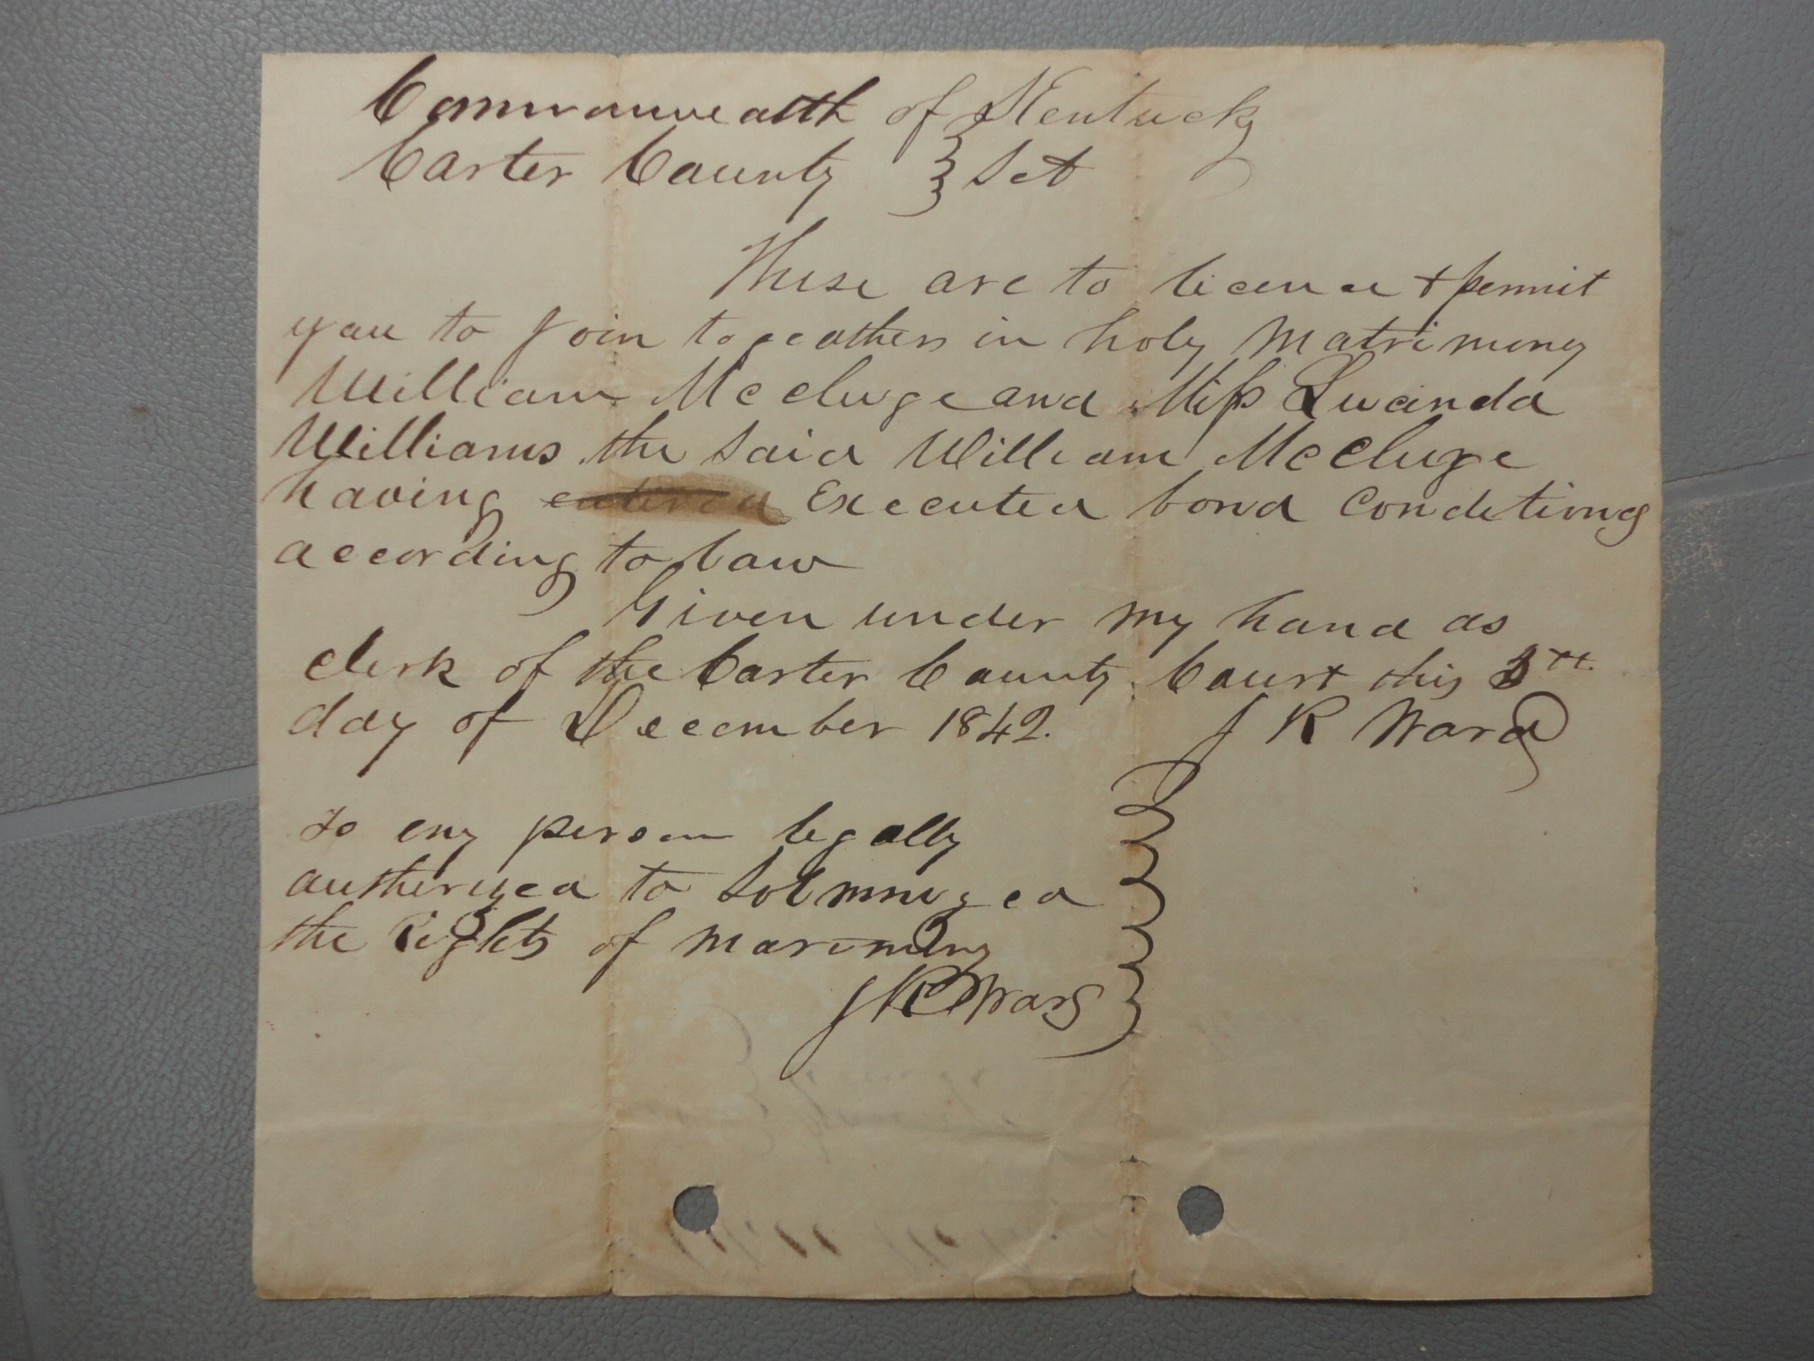 Commonwealth of Kentucky
Carter County } Sct
These are to licence + permit
you to Join togeather in holy Matrimony
William McCluge and Miss Lucinda
Williams the said William McCluge
having entered Executed bond Conditiong
according to law
Given under my hand as
clerk of the Carter County Court this
day of December 1842. J R Ward
to eny person legally
autherized to Solmnized
the Rights of Marimony
J R Ward